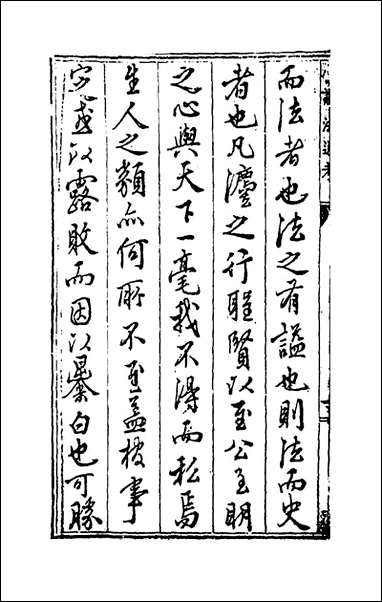 而法者也法之有謚也則法而史
者也凡瀍之行聖賢以至公至明
之心與天下一毫我不得而私焉
生人之類亦何所不至蓋校事
定或以露敗而因以暴白也可勝